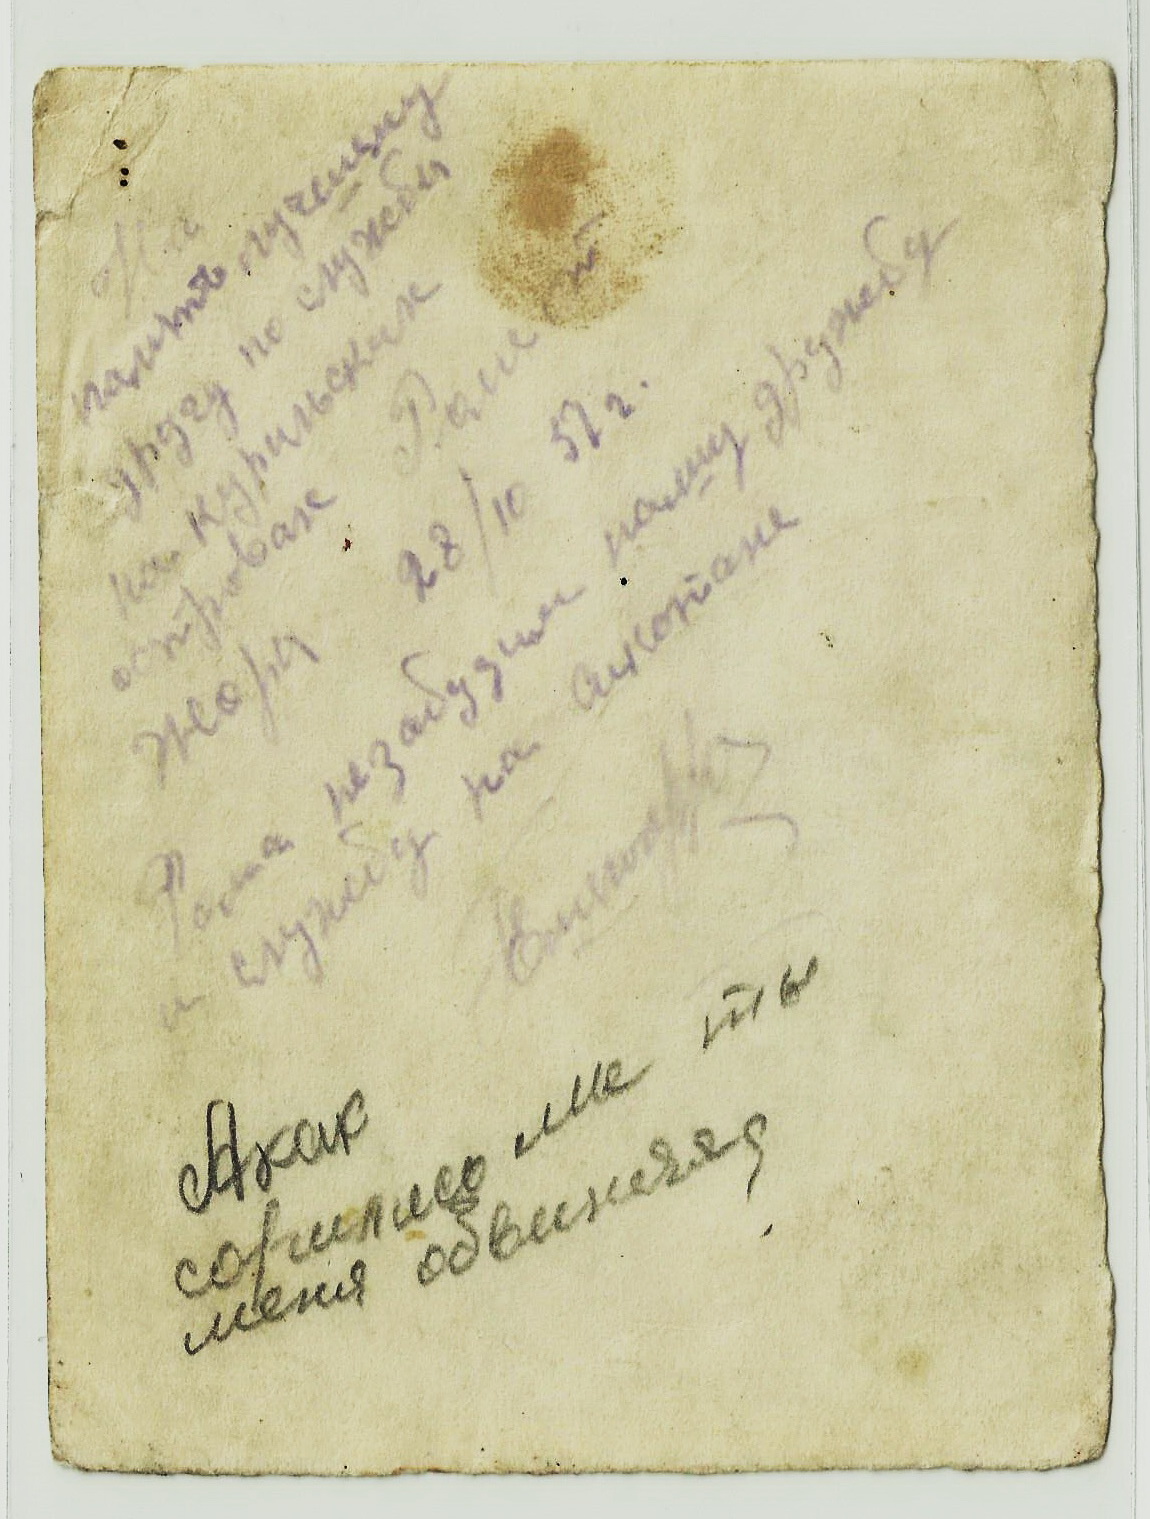 На
память лучшему
другу по службы
на курильских
островах Роме от
Жоры 28/10 57 г.
Рома незабудим нашу дружбу
и службу на Шикотане
Акак
ли ты
меня обвиняя